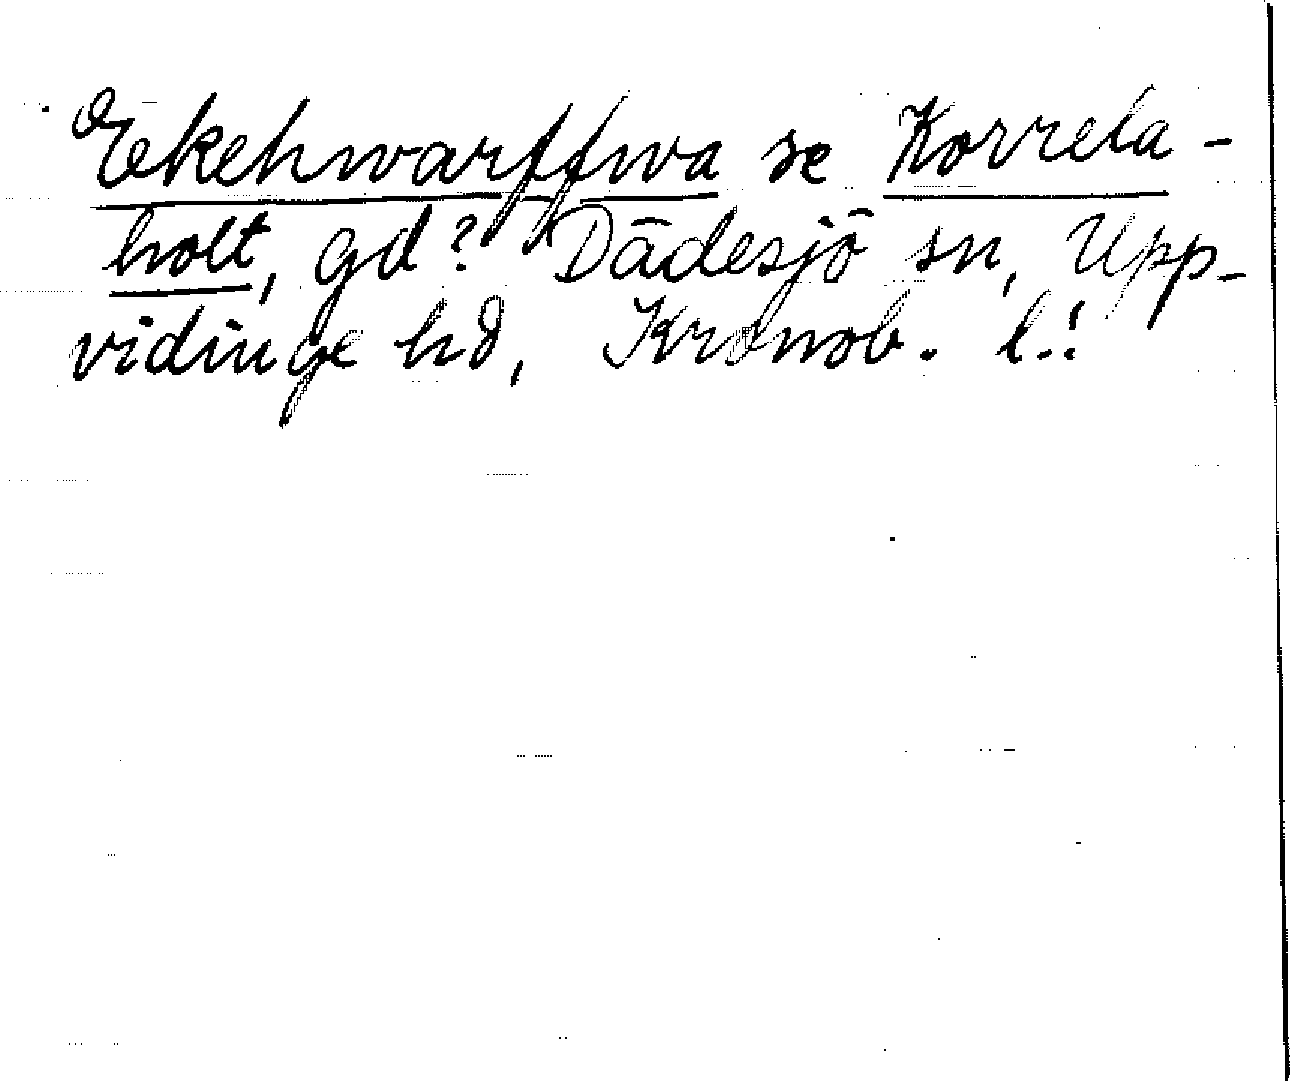 Ekehwarffwa se Korrela-
holt, gd? Dädesjö sn, Upp-
vidinge hd, Kronob. l.!